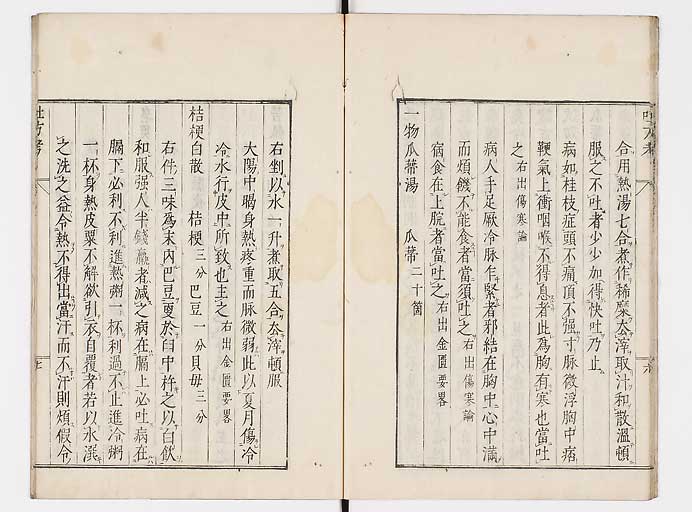 合用熱湯七合煮作稀糜厺滓取汁和散溫頓
服之不吐者少少加得快吐乃止
病如桂枝症頭不痛項不强寸脉微浮胸中痞
鞕氣上衝咽喉不得息者此爲胸有寒也當吐
之右出傷寒論
病人手足厥冷脉乍緊者邪結在胸中心中滿
而煩饑不能食者當須吐之右出傷寒論
宿食在上脘者當吐之右出金匱要畧
一物瓜蒂湯 瓜蒂二十箇
右剉以水一升煮取五合厺滓頓服
太陽中暍身熱疼重而脉微弱此以夏月傷冷
冷水行皮中所致也主之右出金匱要畧
桔梗白散 桔梗三分巴豆一分貝毋三分
右件三味爲末內巴豆更於臼中杵之以白飮
和服强人半錢羸者減之病在膈上必吐病在
膈下必利不利進熱粥一杯利過不止進冷粥
一杯身熱皮粟不解欲引衣自覆者若以水潠
之洗之益令熱不得出當汗而不汗則煩假令
吐方考